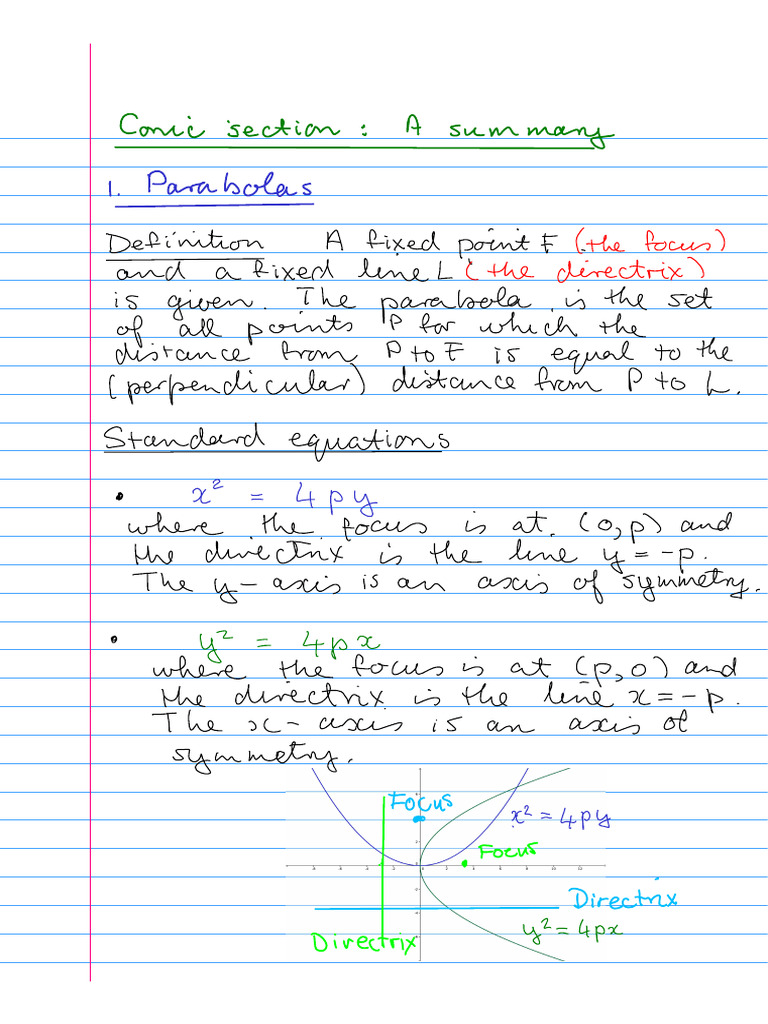 Conic section: A summary
1. Parabolas
Definition A fixed point F (the focus)
and a fixed line L (the directrix)
is given. The parabola is the set
of all points P for which the
distance from P to F is equal to the
(perpendicular) distance from P to L.
Standard equations
• x² = 4py
where the focus is at (0,p) and
the directrix is the line y = -p.
The y-axis is an axis of symmetry.
• y² = 4px
where the focus is at (p,0) and
the directrix is the line x = -p.
The x-axis is an axis of
symmetry.
Focus
x² = 4py
Focus
Directrix
y² = 4px
Directrix